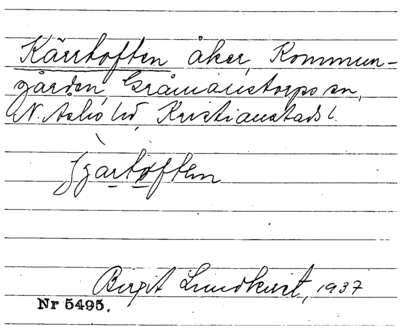 Kärrtoften åker, Kommun-
gården, Gråmanstorps sn,
N. Åsbo hd, Kristianstads l.
Birgit Lundkvist, 1937
Nr 5495.